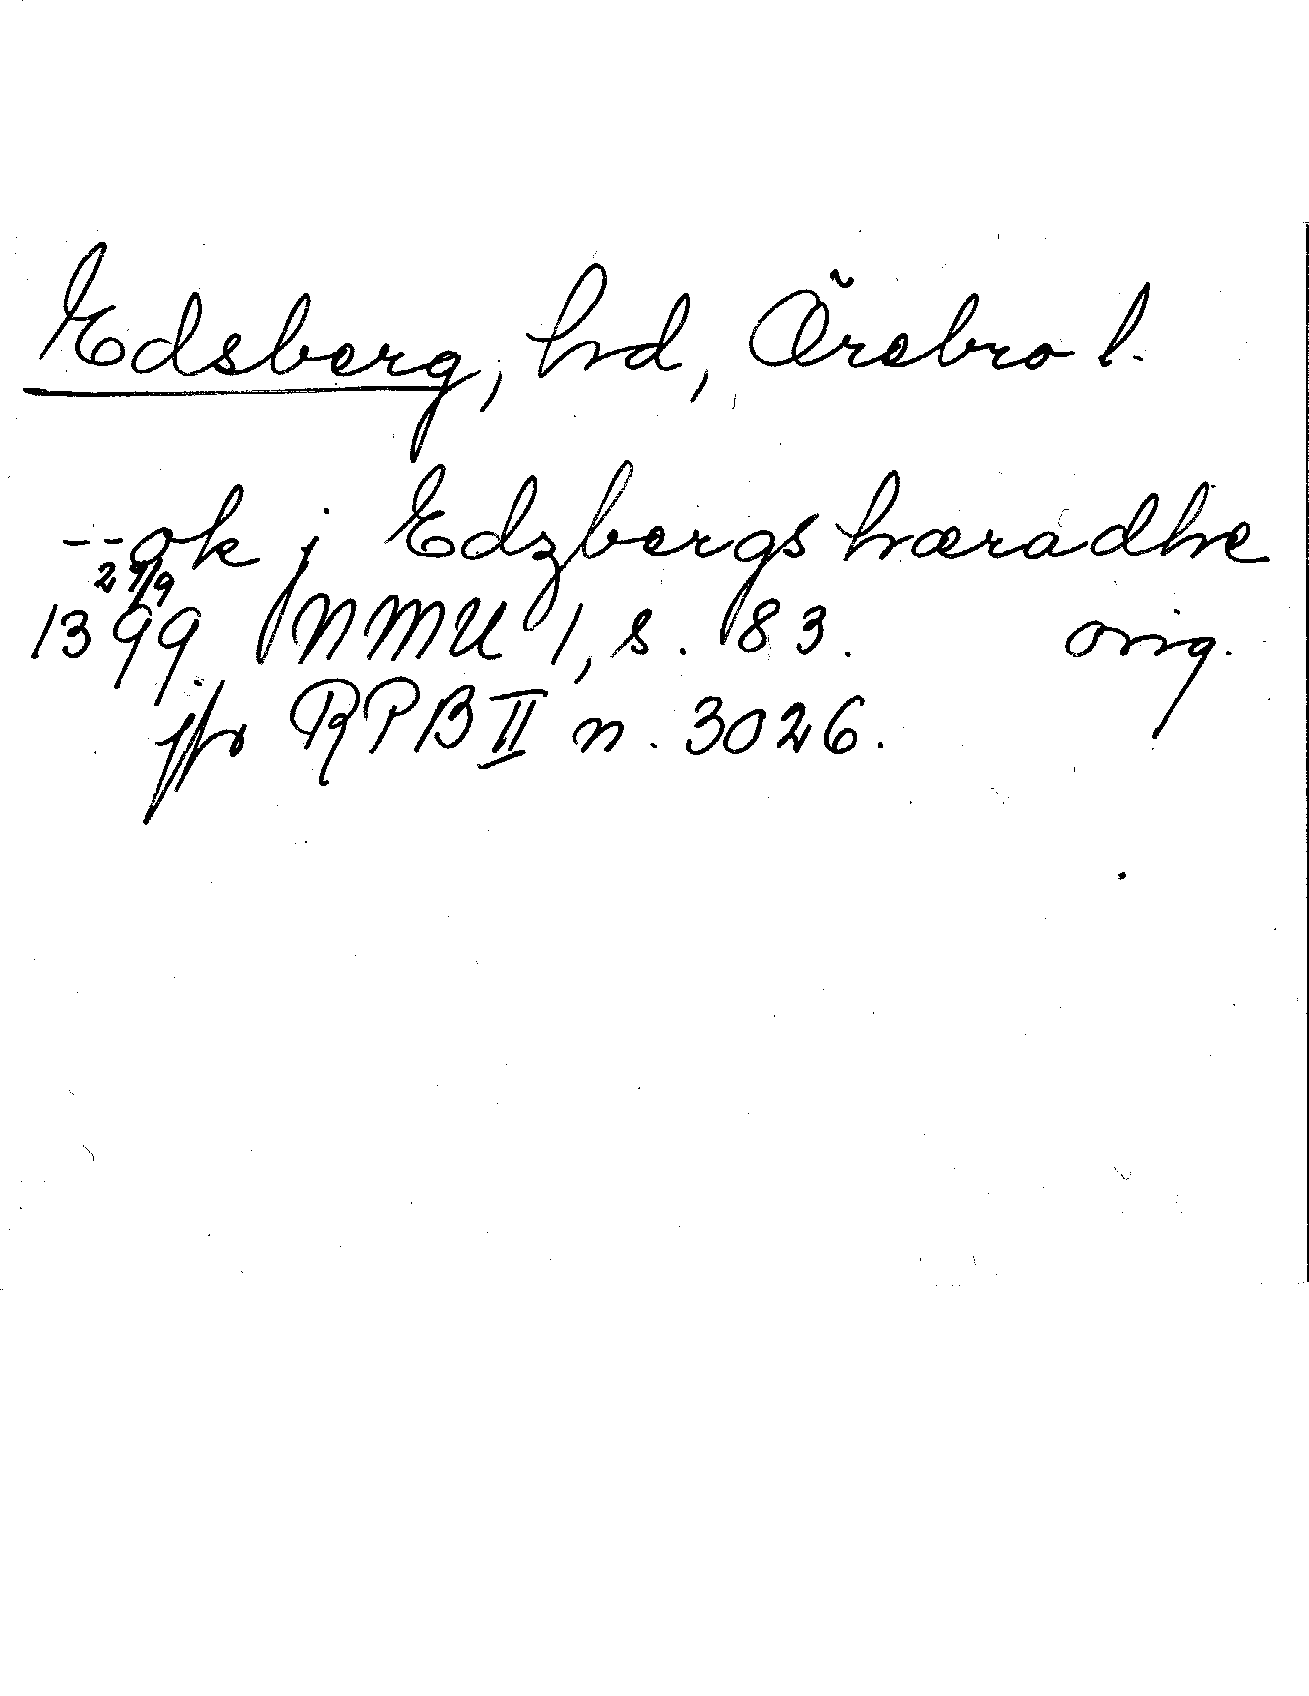 Edsberg, hd, Örebro l.
--ok j Edzbergs hæradhe
29/9
1399 NMU 1, s. 83. orig.
jfr RPB II n. 3026.